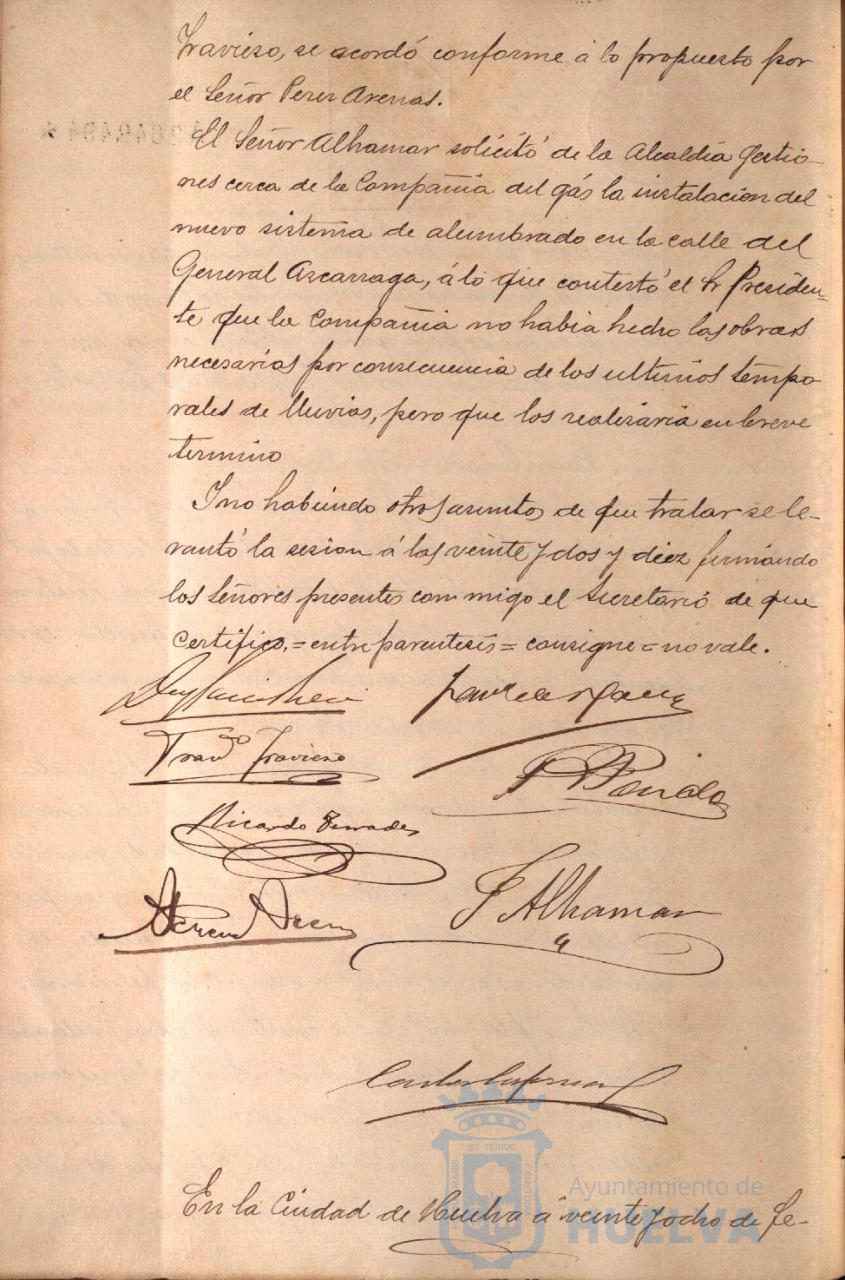 Travieso, se acordó conforme á lo propuesto por
el Señor Perez Arenas.
El Señor Alhamar solicitó de la Alcaldia gestio-
nes cerca de la Compañia del gás la instalacion del
nuevo sistema de alumbrado en la calle del
General Azcarraga, á lo que contestó el Sr Presiden-
te que la Compañia no habia hecho las obras
necesarias por consecuencia de los ultimos tempo-
rales de lluvias, pero que los realizaria en breve
termino
Y no habiendo otros asuntos de que tratar se le-
vantó la sesion á las veinte y dos y diez firmando
los Señores presentes con migo el Secretario de que
certifico.=entre parentesis=consigne=no vale.
Franco Travieso
Ricardo Terrades
J Alhamar
IET TERRÆ
CUSTODIA
MARIS
Ayuntamiento de
HUELVA
En la Ciudad de Huelva á veinte y ocho de Fe-